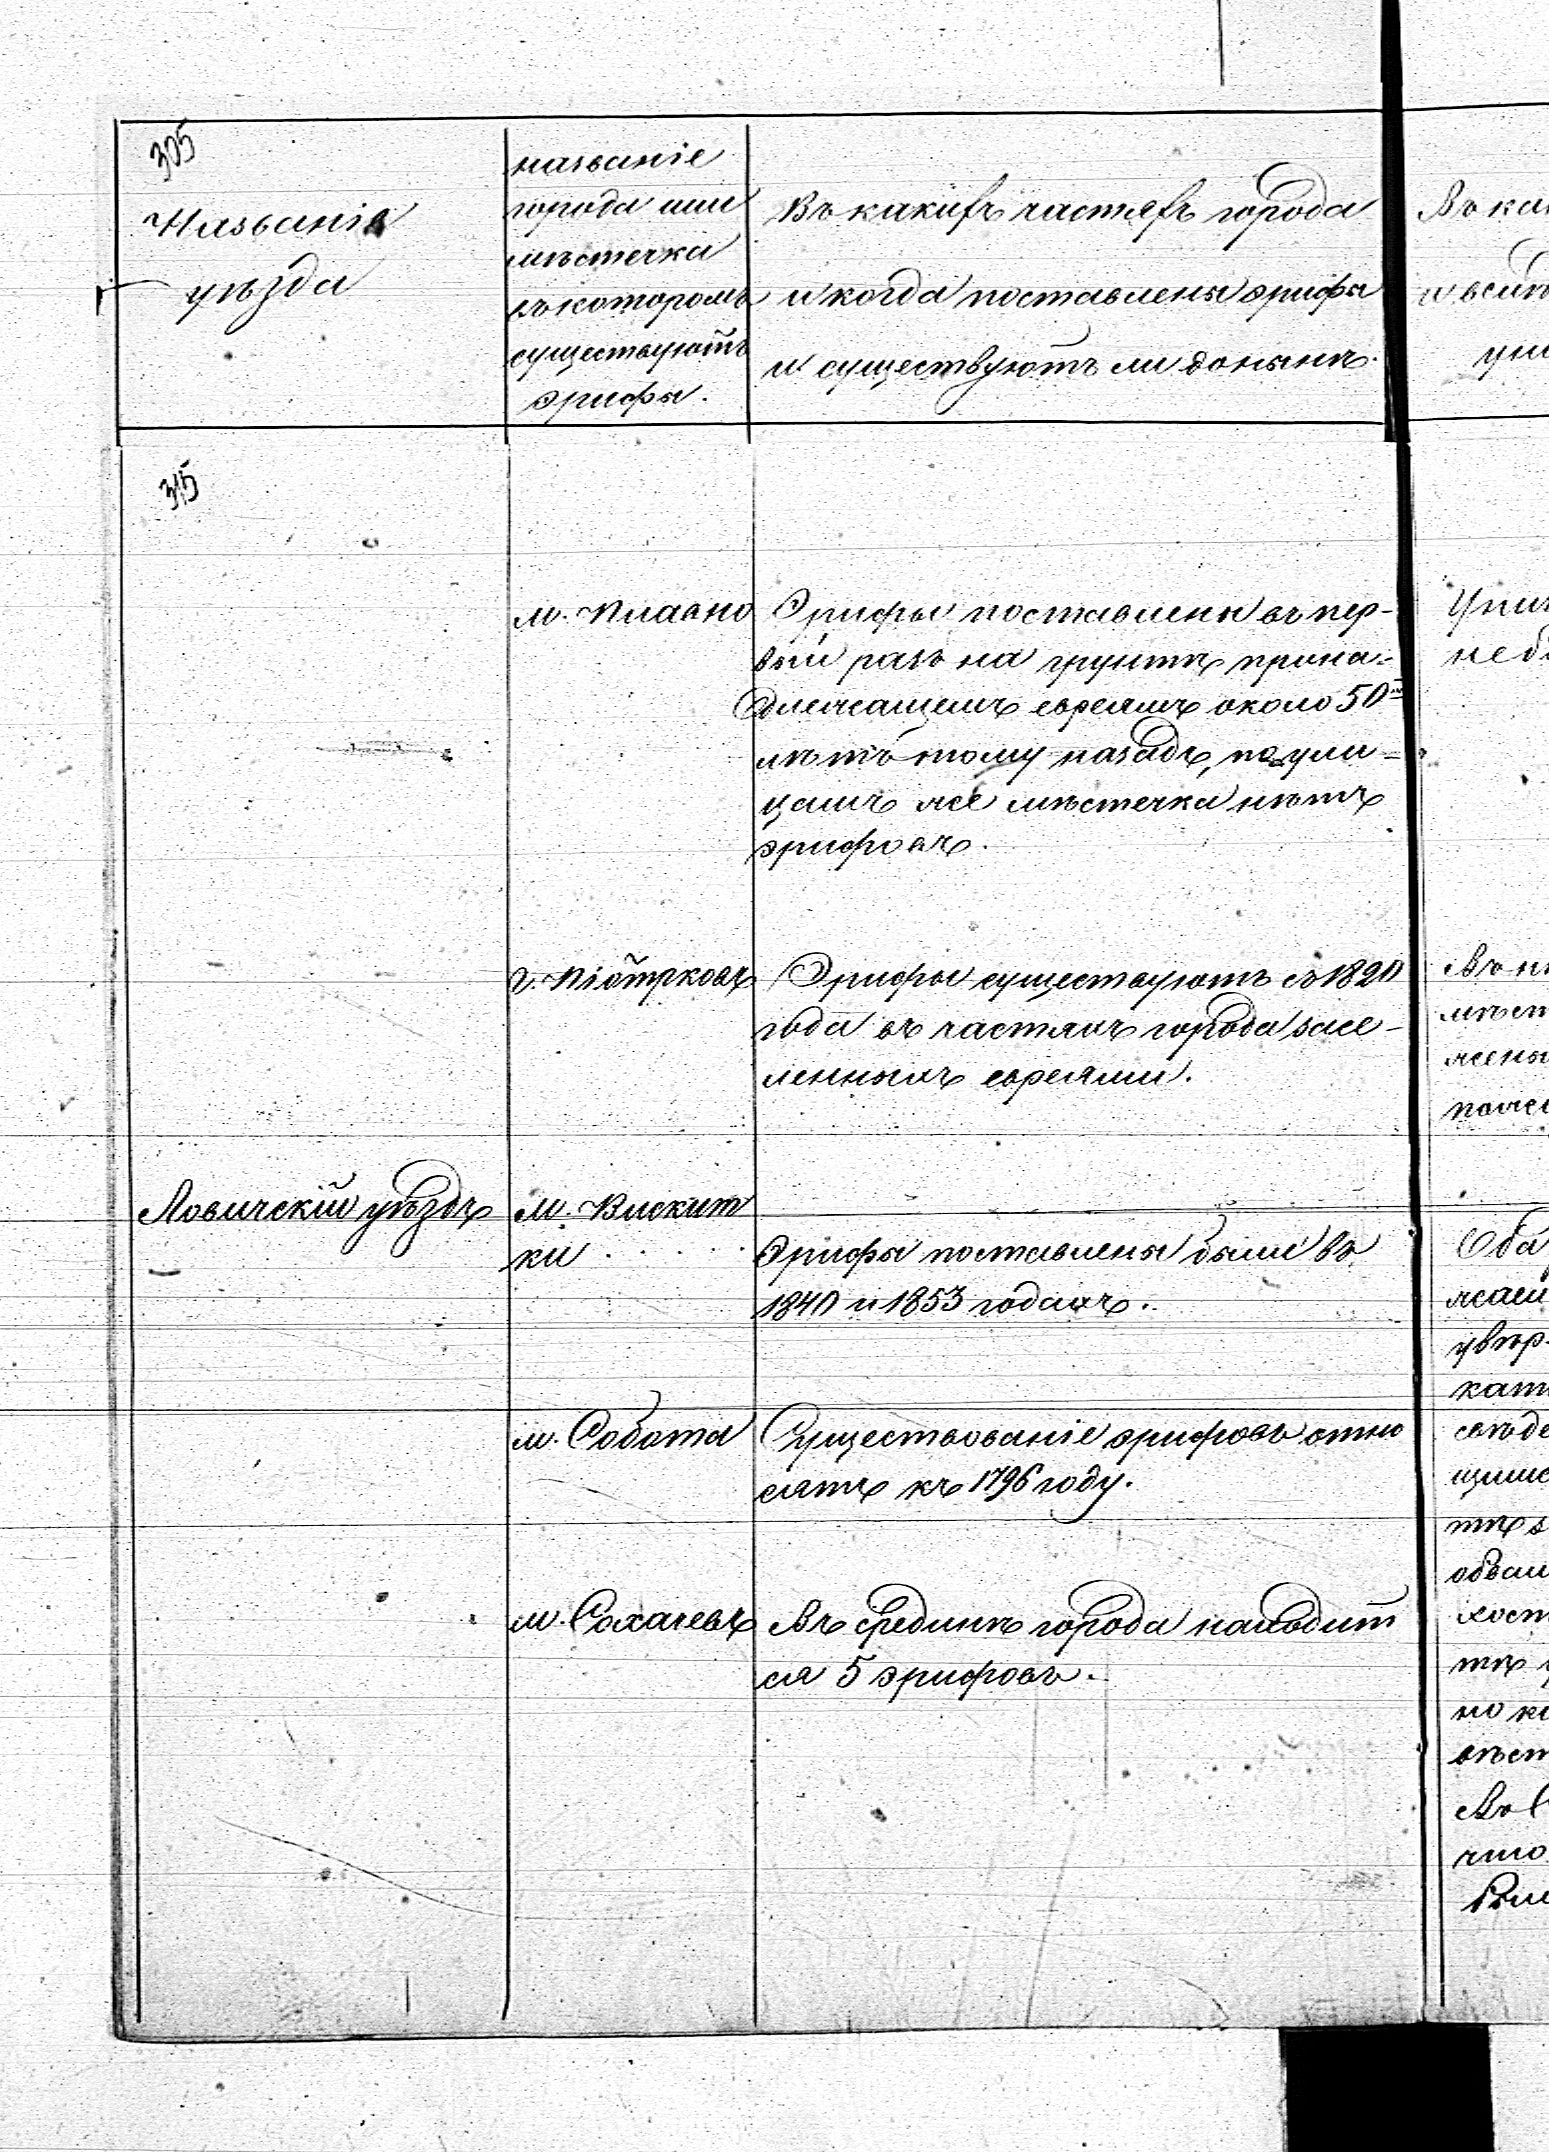 305
Названіе
уѣзда
названіе
города или
мѣстечка
въ которомъ
существуютъ
эрифы.
Въ какихъ частяхъ города
и когда поставлены эрифы
и существуютъ ли донынѣ.
315
м. Плавно
Эрифы поставлены въ пер-
вый разъ на грунтѣ прина-
длежащемъ евреямъ около 50
лѣтъ тому назадъ, по ули-
цамъ же мѣстечка нѣтъ
эрифовъ.
г. Піотрковъ
Эрифы существуютъ съ 1820
года въ частяхъ города засе-
ленныхъ евреями.
Ловичскій уѣздъ
м. Вискит
ки . . . . .
Эрифы поставлены были въ
1840 и 1853 годахъ.
м. Собота
Существованіе эрифовъ отно
сятъ къ 1796 году.
м. Сохачевъ
Въ срединѣ города находит
ся 5 эрифовъ.